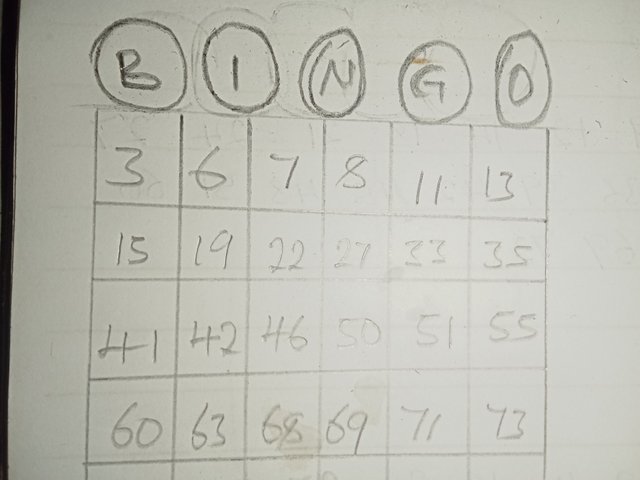 B I N G O
3 6 7 8 11 13
15 19 22 27 33 35
41 42 46 50 51 55
60 63 68 69 71 73